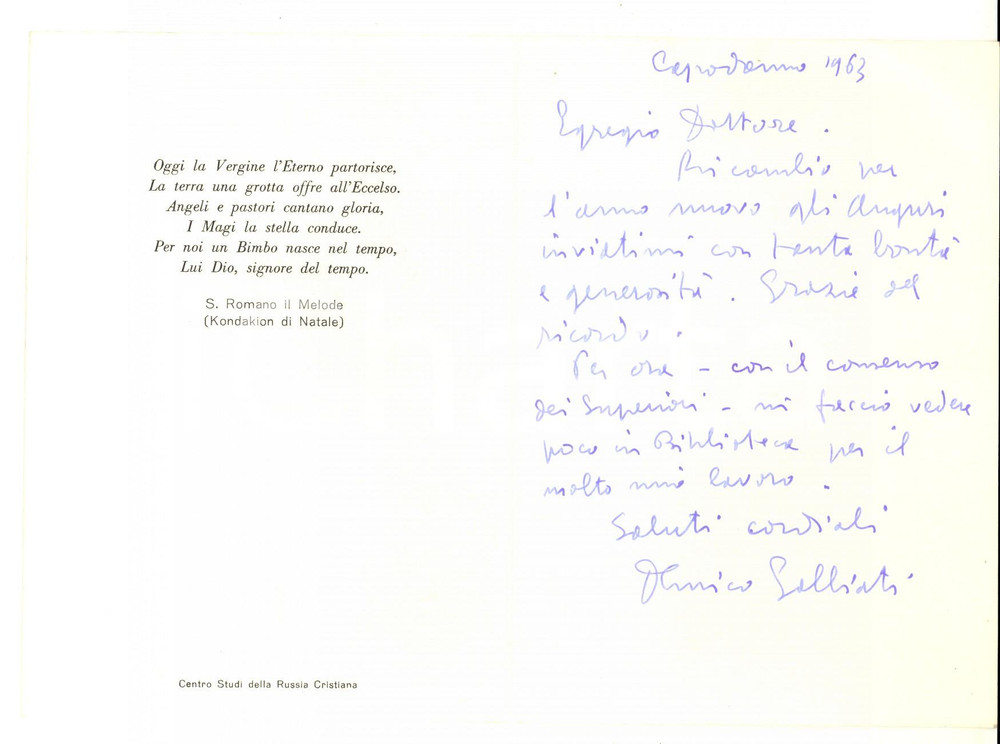 Oggi la Vergine l'Eterno partorisce,
La terra una grotta offre all'Eccelso.
Angeli e pastori cantano gloria,
I Magi la stella conduce.
Per noi un Bimbo nasce nel tempo,
Lui Dio, signore del tempo.
S. Romano il Melode
(Kondakion di Natale)
Centro Studi della Russia Cristiana
Capodanno 1963
Egregio Dottore.
Ricambio per
l'anno nuovo gli Auguri
inviatimi con tanta bontà
e generosità. Grazie del
ricordo.
Per ora - con il consenso
dei Superiori - mi faccio vedere
poco in Biblioteca per il
molto mio lavoro.
Saluti cordiali
Galbiati